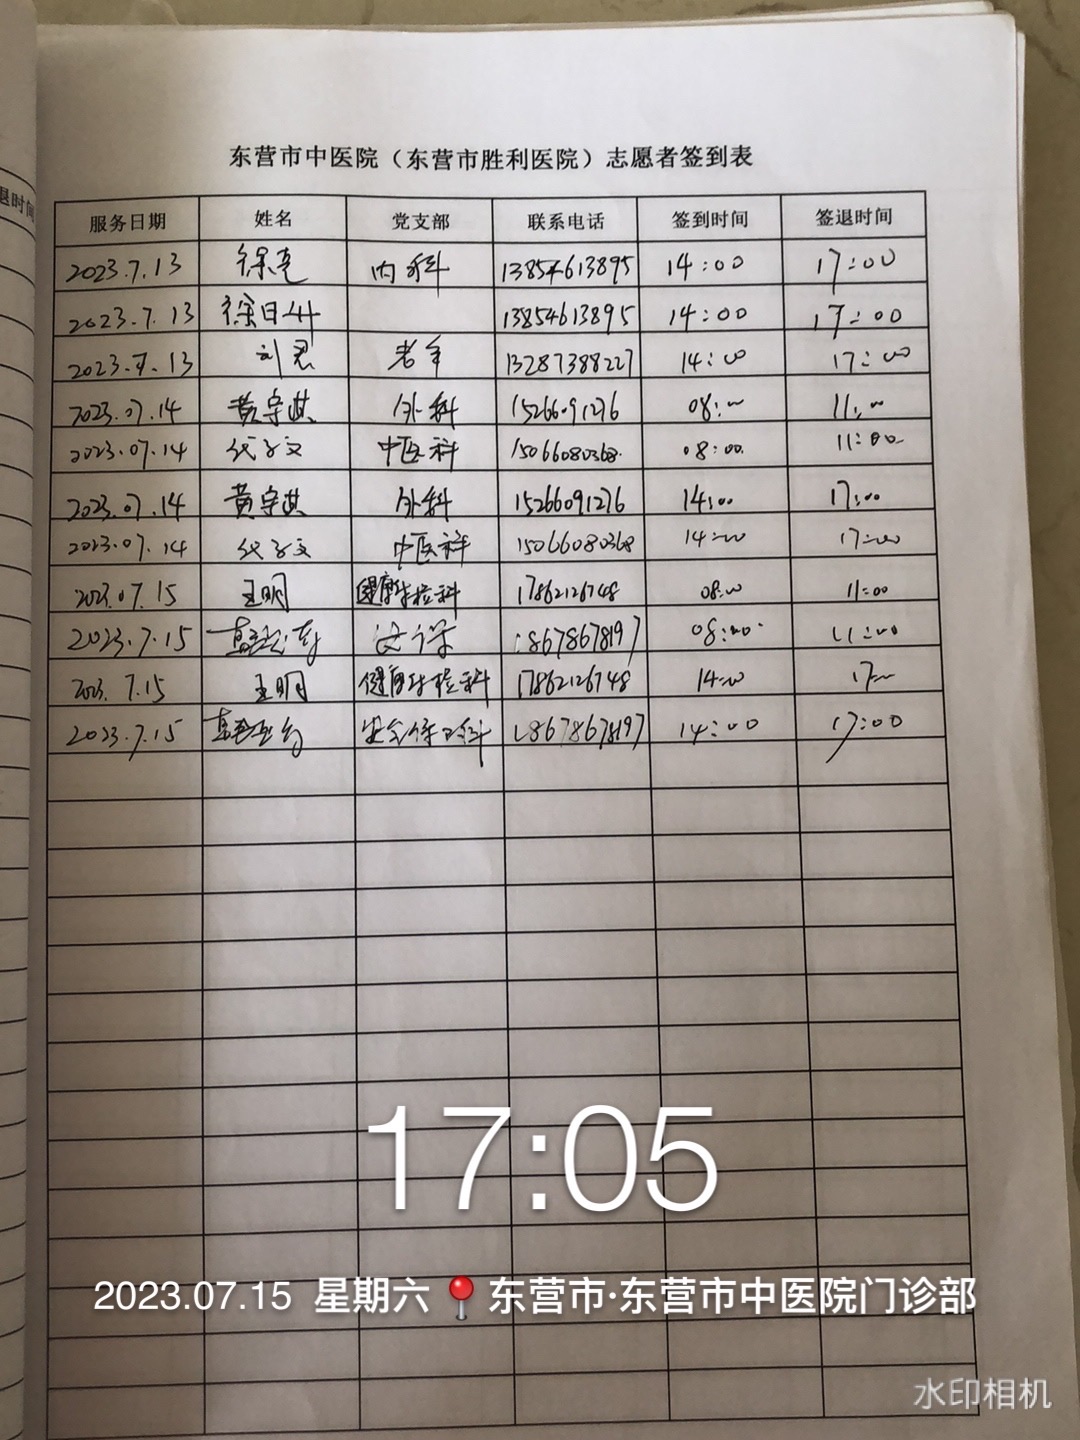 东营市中医院（东营市胜利医院）志愿者签到表
退时间
服务日期 姓名 党支部 联系电话 签到时间 签退时间
2023.7.13 徐亮 内科 13854613895 14:00 17:00
2023.7.13 13854613895 14:00 17:00
2023.7.13 刘君 老年 13287388227 14:00 17:00
2023.07.14 黄宇淇 外科 15266091276 08:00 11:00
2023.07.14 代子文 中医科 15066080368 08:00 11:00
2023.07.14 黄宇淇 外科 15266091276 14:00 17:00
2023.07.14 代子文 中医科 15066080368 14:00 17:00
2023.07.15 王明 健康体检科 17862126748 08:00 11:00
2023.7.15 18678678197 08:00 11:00
2023.7.15 王明 健康体检科 17862126748 14:00 17:00
2023.7.15 安全保卫科 18678678197 14:00 17:00
17:05
2023.07.15 星期六 东营市·东营市中医院门诊部
水印相机